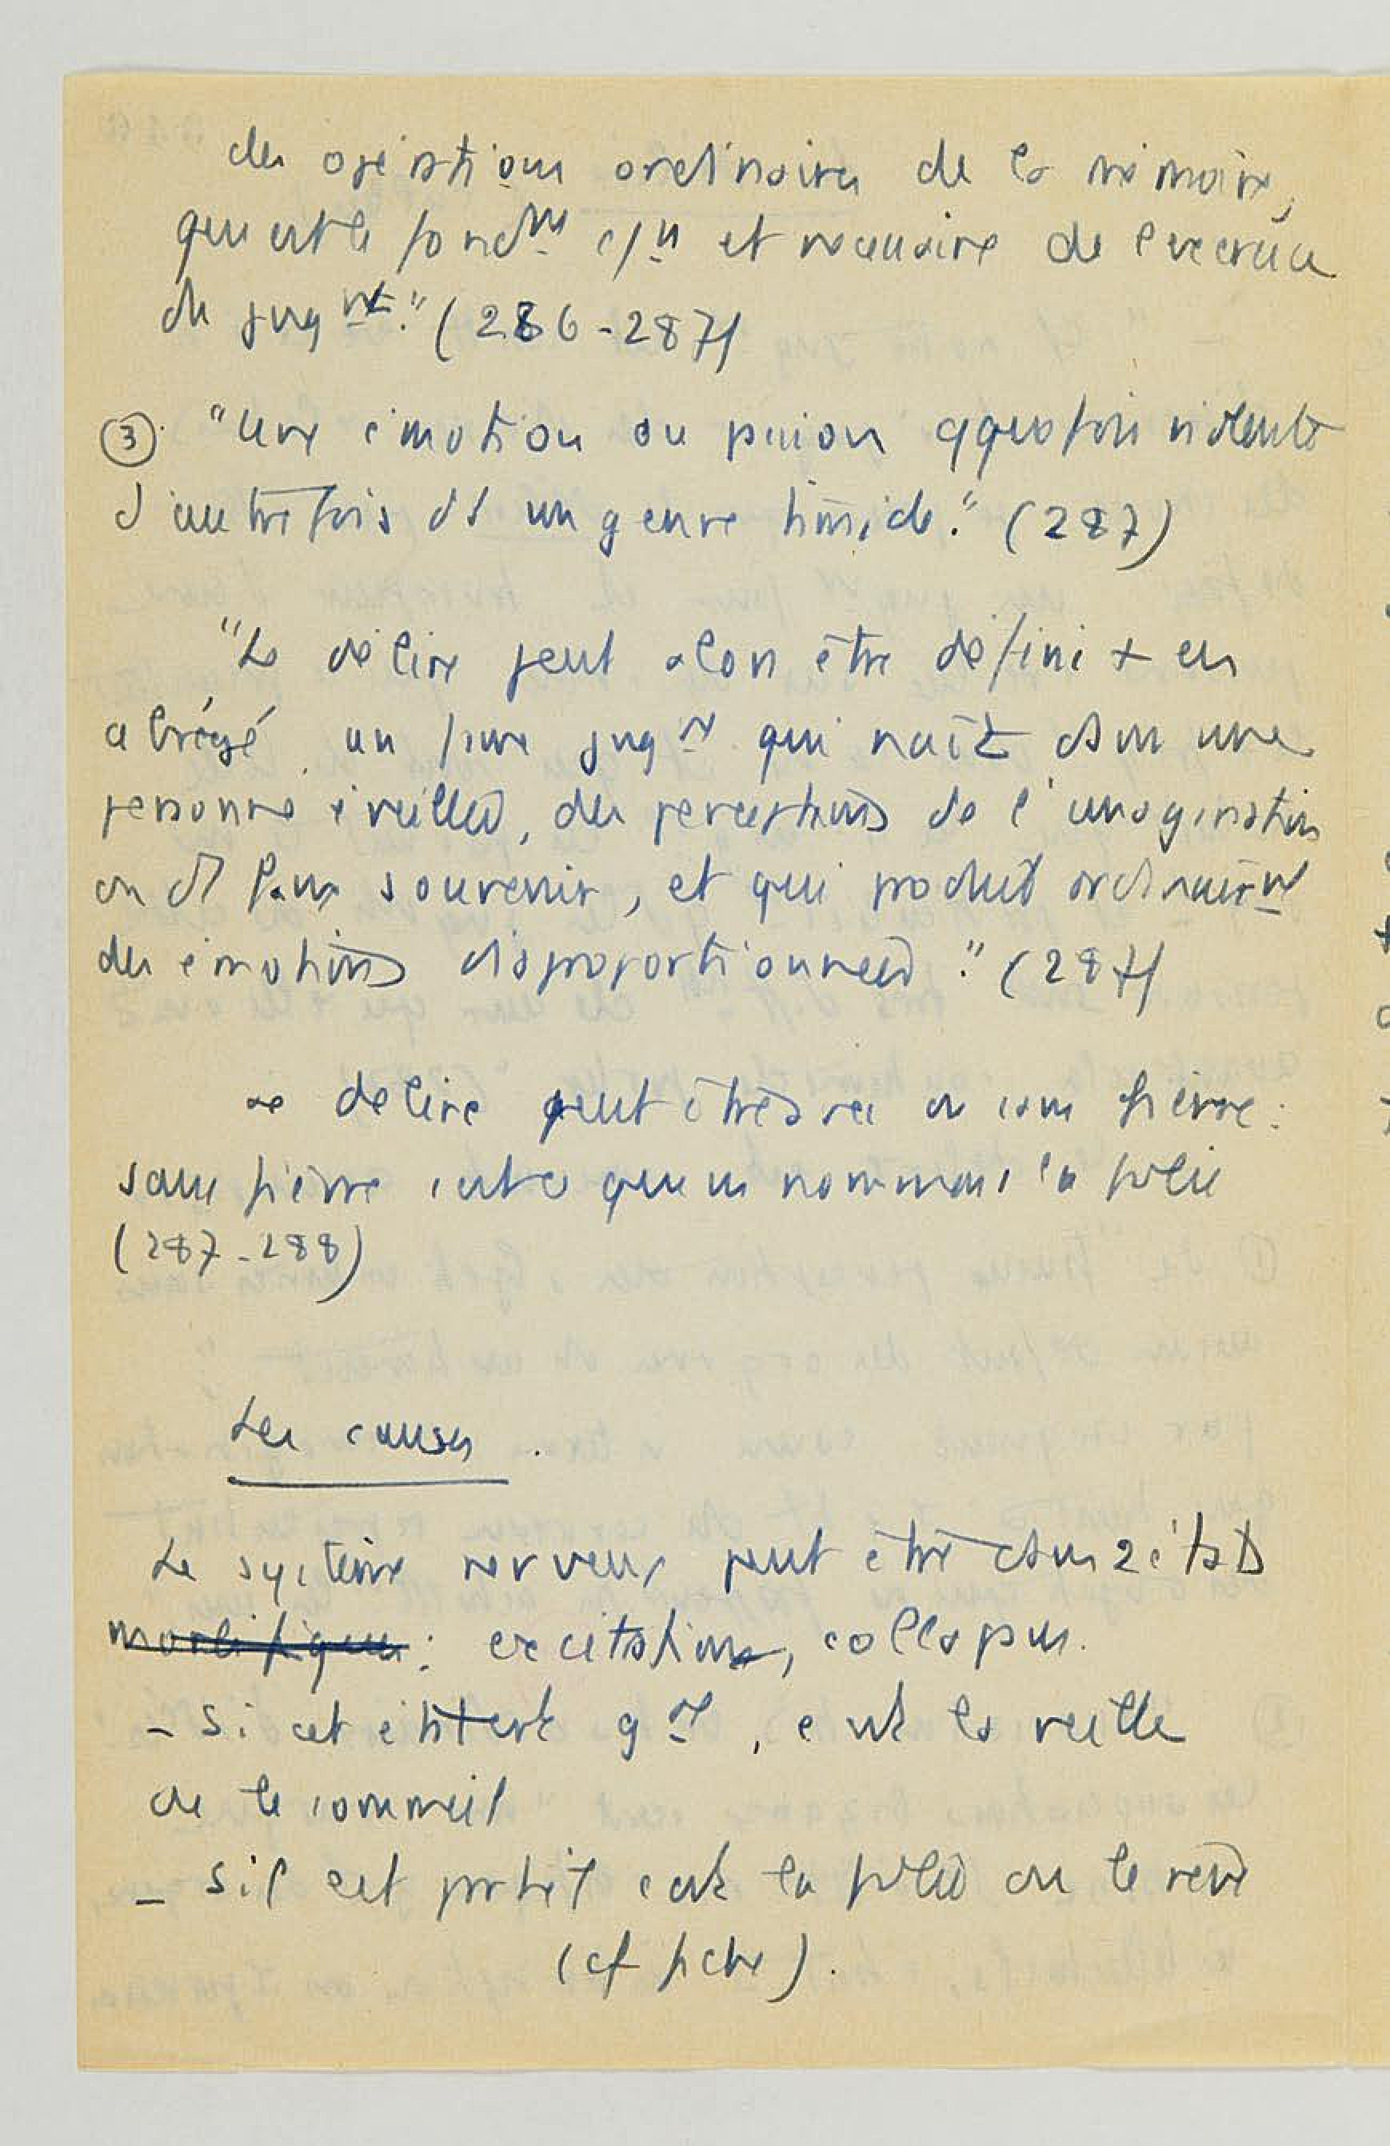 des opérations ordinaires de la mémoire,
qui est le fondmt c/n et nécessaire de l'exercice
du jugmt." (286-287)
③. "Une émotion ou passion qquefois violente
d'autrefois ds un genre timide." (287)
"Le délire peut alors être défini + en
abrégé un faux jugmt qui naît dans une
personne éveillée, des perceptions de l'imagination
ou d'1 faux souvenir, et qui produit ordinairmt
des émotions disproportionnées." (287)
Le délire peut être avec ou sans fièvre:
sans fièvre c'est ce que ns nommons la folie
(287-288)
Les causes.
Le système nerveux peut être dans 2 états
morbifiques: excitation, collapsus.
- Si cet état est gal, c'est la veille
ou le sommeil
- S'il est partiel c'est la folie ou le rêve
(cf fiche).